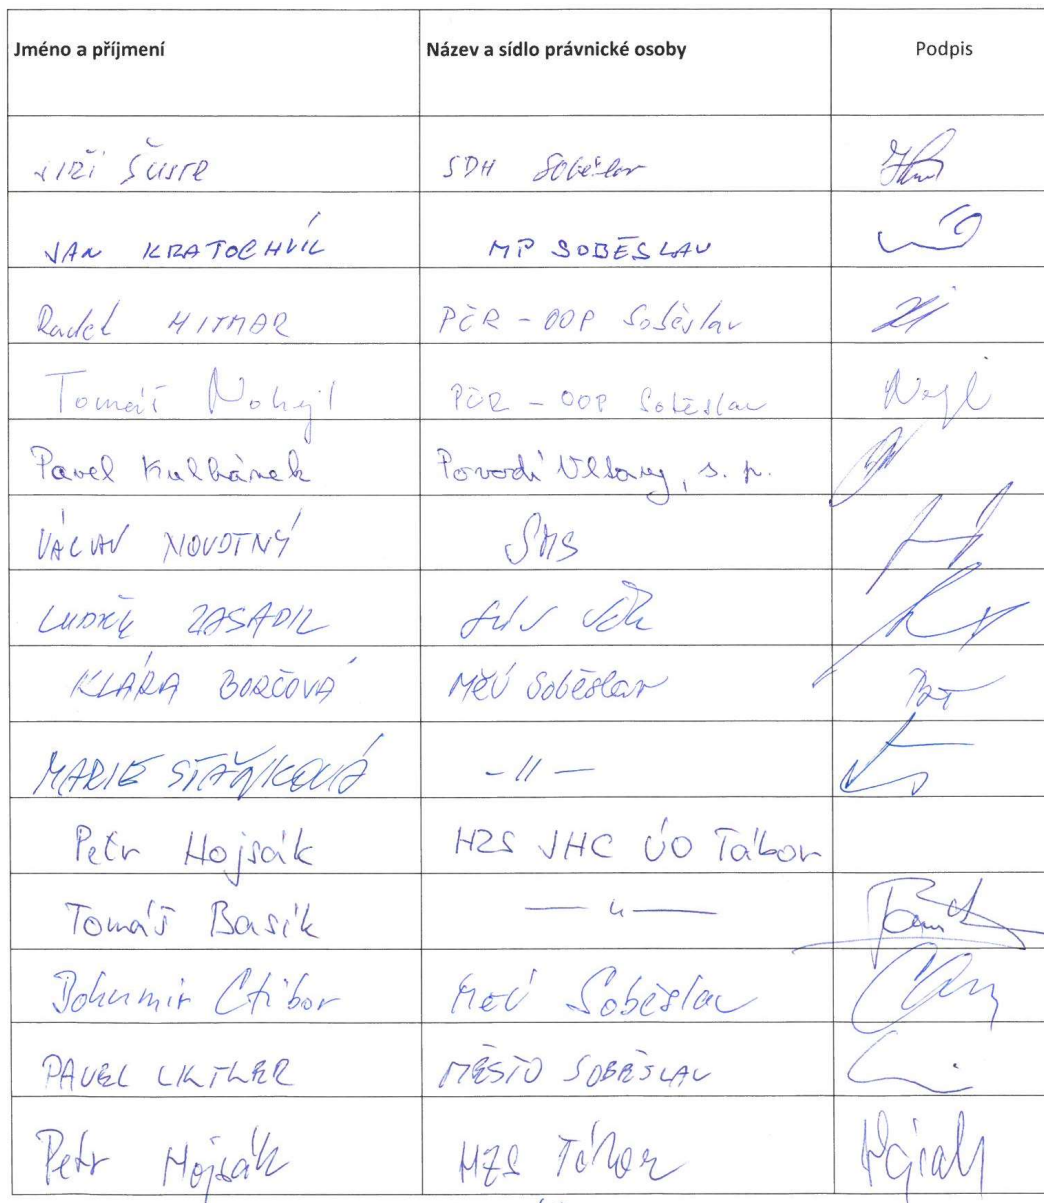 Jméno a příjmení Název a sídlo právnické osoby Podpis
JIŘÍ ŠUSTR SDH Soběslav
JAN KRATOCHVÍL MP SOBĚSLAV
Radek HITMAR PČR - OOP Soběslav
Tomáš Nohejl PČR - OOP Soběslav
Pavel Kulhánek Povodí Vltavy, s. p.
VÁCLAV NOVOTNÝ SMS
LUDĚK ZASADIL
KLÁRA BORČOVÁ MěÚ Soběslav
MARIE STAŇKOVÁ - 11 -
Petr Hojsák HZS JHC ÚO Tábor
Tomáš Basík — 11 —
Bohumír Ctibor MěÚ Soběslav
PAVEL MĚSTO SOBĚSLAV
Petr Hojsák HZS Tábor